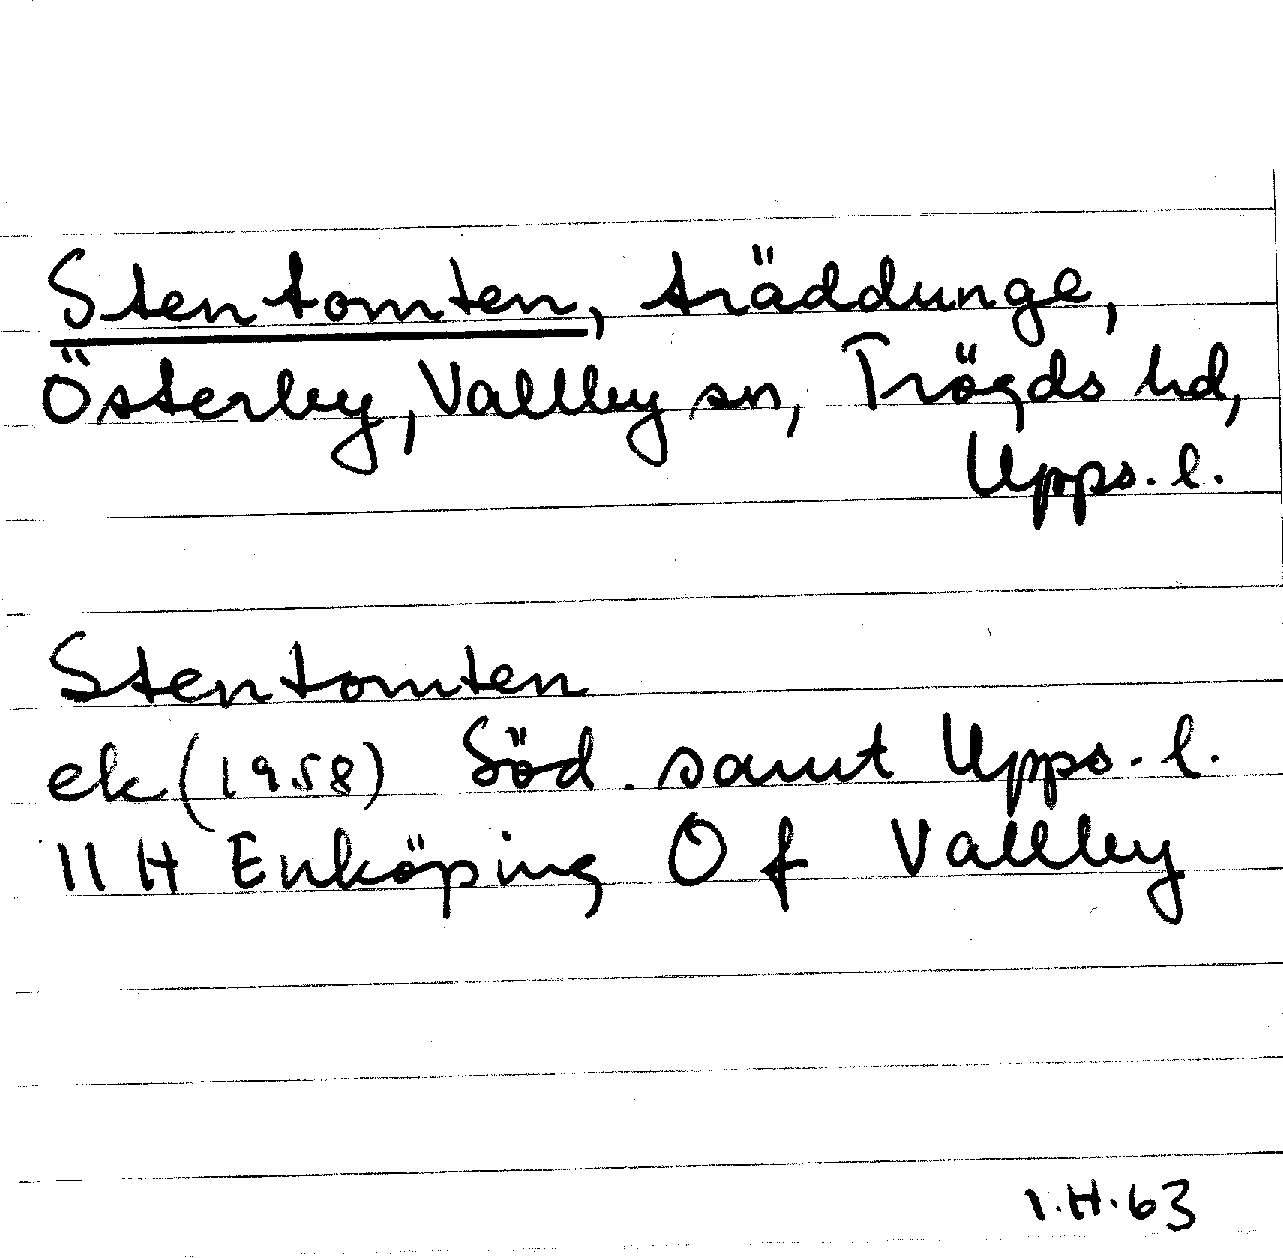 Stentomten, träddunge,
Österby, Vallby sn, Trögds hd,
Upps. l.
Stentomten
ek (1958) Söd. samt Upps. l.
11 H Enköping O f Vallby
I.H. 63